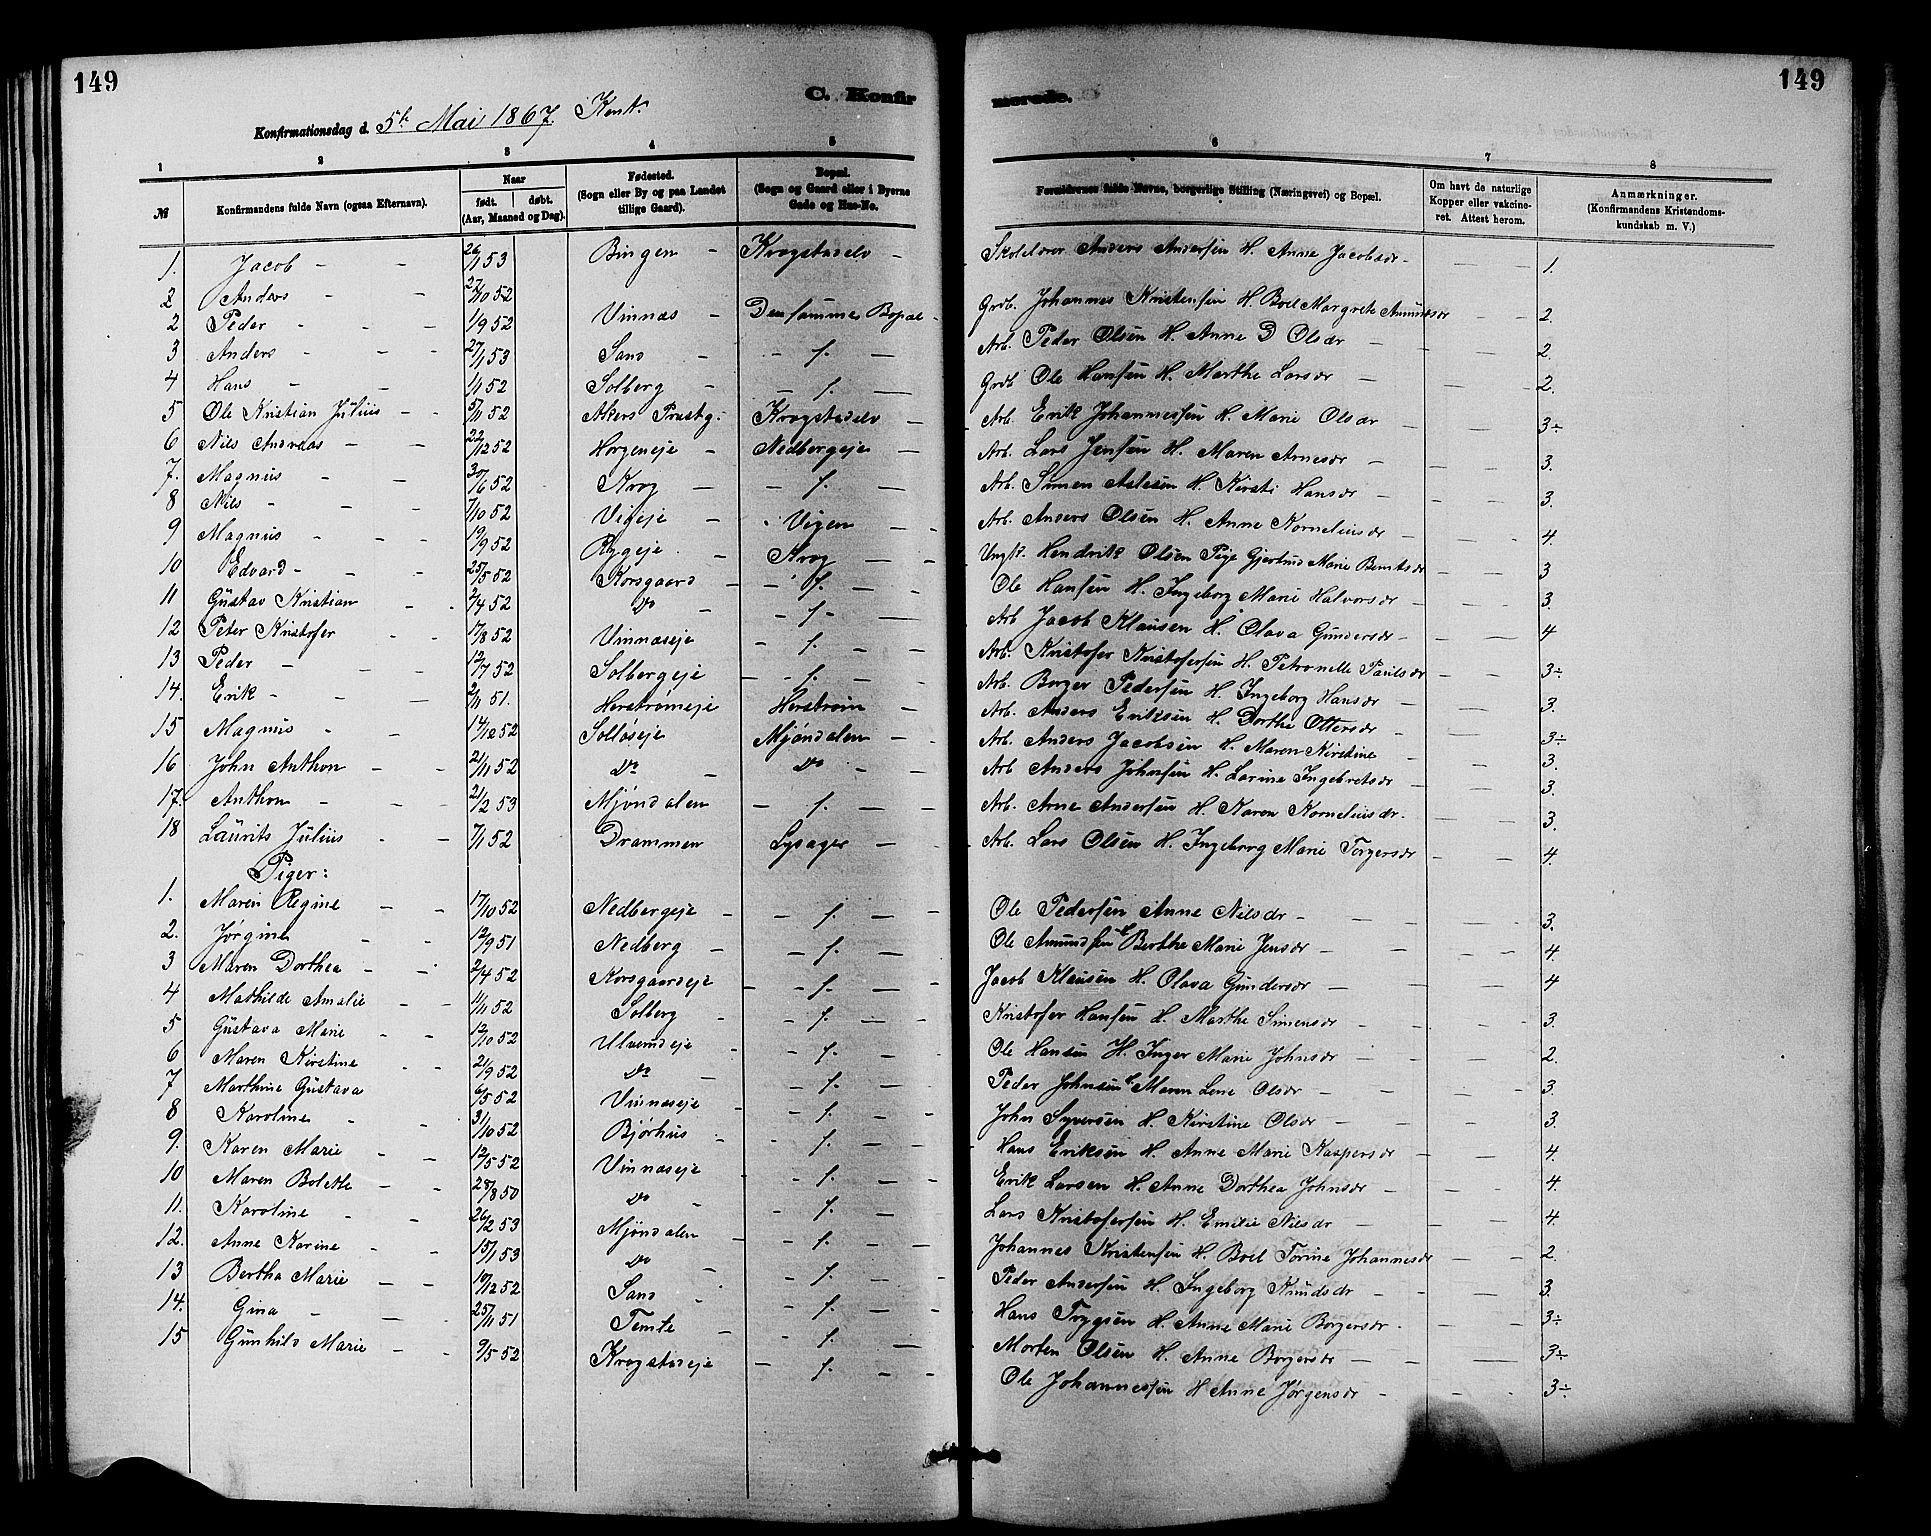 149
149
C. Konfirmerede.
Konfirmationsdag d. 5te Mai 1867.
1 2 3 4 5 6 7 8
№ Konfirmandens fulde Navn (ogsaa Efternavn). Naar født. døbt. (Aar, Maaned og Dag). Fødested. (Sogn eller By og paa Landet tillige Gaard). Bopæl. (Sogn og Gaard eller i Byerne Gade og Hus-No. Forældrenes fulde Navne, borgerlige Stilling (Næringsvei) og Bopæl. Om havt de naturlige Kopper eller vakcineret. Attest herom. Anmærkninger. (Konfirmandens Kristendomskundskab m. V.)
1. Jacob 26/1 53 Bingen Krogstadelv Skolelærer Anders Andersen H. Anne Jacobsdr 1.
2 Anders 27/10 52 Grdb. Johannes Kristensen H. Boel Margrete Amundsdr 2.
2 Peder 1/9 52 Vinnæs Den samme Bopæl Arb. Peder Olsen H. Anne D Olsdr 2.
3 Anders 27/1 53 Sand f. Grdb Ole Hansen H. Marthe Larsdr 2.
4 Hans 1/1 52 Solberg f. Arb. Erik Johannessen H. Marie Olsdr 3÷
5 Ole Kristian Julius 5/11 52 Akers Præstg: Krogstadelv Arb. Lars Jensen H. Maren Arnesdr 3.
6 Nils Andreas 22/12 52 Horgeneje Nedbergeje Arb. Simen Aslesen H. Kirsti Hansdr 3.
7. Magnus 30/6 52 Krog f. Arb. Anders Olsen H. Anne Korneliusdr 4.
8 Nils 7/10 52 Vigeje Vigen Ungk. Hendrik Olsen Pige Gjertrud Marie Berntsdr 3
9 Magnus 19/9 52 Rygeje Krog Ole Hansen H. Ingeborg Marie Halvorsdr 3.
10 Edvard 25/5 52 Korsgaard f. Arb Jacob Klausen H. Olava Gundersdr 4
11 Gustav Kristian 2/4 52 Do f. Arb. Kristofer Kristofersen H. Petronelle Paulsdr 3÷
12 Peter Kristofer 17/8 52 Vinnæseje f. Arb. Borger Pedersen H. Ingeborg Hansdr 3.
13 Peder 12/7 52 Solbergeje f. Arb. Anders Eriksen H. Dorthe Ottersdr 3÷
14. Erik 2/11 51. Herstrømeje Herstrøm Arb. Anders Jacobsen H. Maren Kirstine 3.
15 Magnus 14/12 52 Solløseje Mjøndalen Arb Anders Johnsen H. Larine Ingebretsdr 3.
16 John Anthon 21/11 52 Do Do Arb. Arne Andersen H. Karen Kornelius dr. 3.
17. Anthon 21/2 53 Mjøndalen f. Arb. Lars Olsen H. Ingeborg Marie Torgersdr 4.
18 Laurits Julius 7/11 52 Drammen Lysager
Piger:
1. Maren Regine 17/10 52 Nedbergeje f. Ole Pedersen Anne Nilsdr 3.
2. Jørgine 12/9 51 Nedberg f. Ole Amundsen Berthe Marie Jensdr 4.
3 Maren Dorthea 2/4 52 Korsgaardeje f. Jacob Klausen H. Olava Gundersdr 4
4 Mathilde Amalie 1/11 52 Solberg f. Kristofer Hansen H. Marthe Simensdr 3.
5 Gustava Marie 12/10 52 Ulverudeje f. Ole Hansen H. Inger Marie Johnsdr 2.
6 Maren Kirstine 21/9 52 Do f. Peder Johnsen Maren Lene Olsdr 3.
7 Marthine Gustava 6/5 52 Vinnæseje f. John Syversen H. Kirstine Olsdr 3.
8 Karoline 31/10 52 Bjørhus f. Hans Eriksen H. Anne Marie Kaspersdr 4.
9. Karen Marie 12/5 52 Vinnæseje f. Erik Larsen H. Anne Dorthea Johnsdr 4.
10 Maren Bolette 28/8 50 Do f. Lars Kristofersen H. Emilie Nilsdr 4.
11. Karoline 26/2 53 Mjøndalen f. Johannes Kristensen H. Boel Torine Johannesdr 2.
12. Anne Karine 15/1 53 Do f. Peder Andersen H. Ingeborg Knudsdr 3.
13 Bertha Marie 10/12 52 Sand f. Hans Trygsen H. Anne Marie Borgersdr 3÷
14. Gina 25/11 51 Temte f. Morten Olsen H. Anne Borgersdr 3÷
15 Gunhild Marie 9/5 52 Krogstadeje f. Ole Johannessen H Anne Jørgensdr 3÷